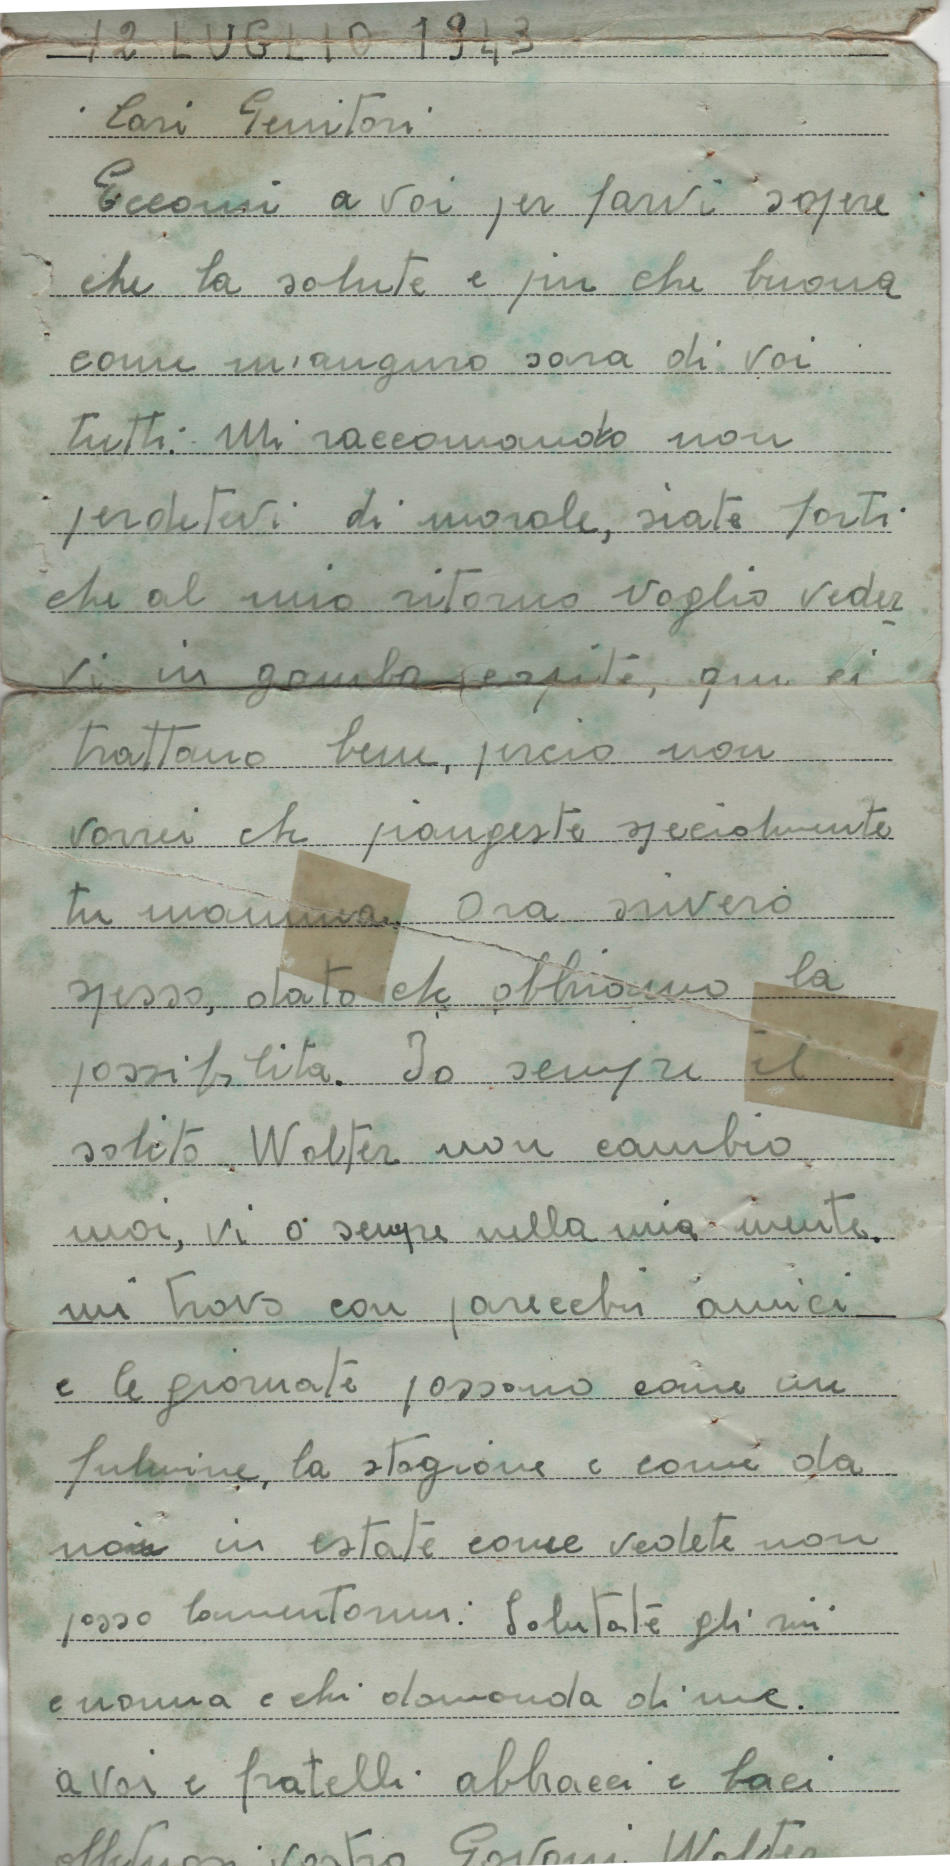 12 LUGLIO 1943
Cari Genitori
Eccomi a voi per farvi sapere
che la salute e piu che buona
come m'auguro sara di voi
tutti. Mi raccomando non
perdetevi di morale, siate forti
che al mio ritorno voglio veder
vi in gamba capite, qui ci
trattano bene, percio non
vorrei che piangeste specialmente
tu mamma. Ora scrivero
spesso, dato che abbiamo la
possibilita. Io sempre il
solito Walter non cambio
mai, vi o sempre nella mia mente.
mi trovo con parecchi amici
e le giornate passano come un
fulmine, la stagione e come da
noi in estate come vedete non
posso lamentarmi. Salutate gli zii
e nonna e chi domanda di me.
a voi e fratelli abbracci e baci
vostro Walter